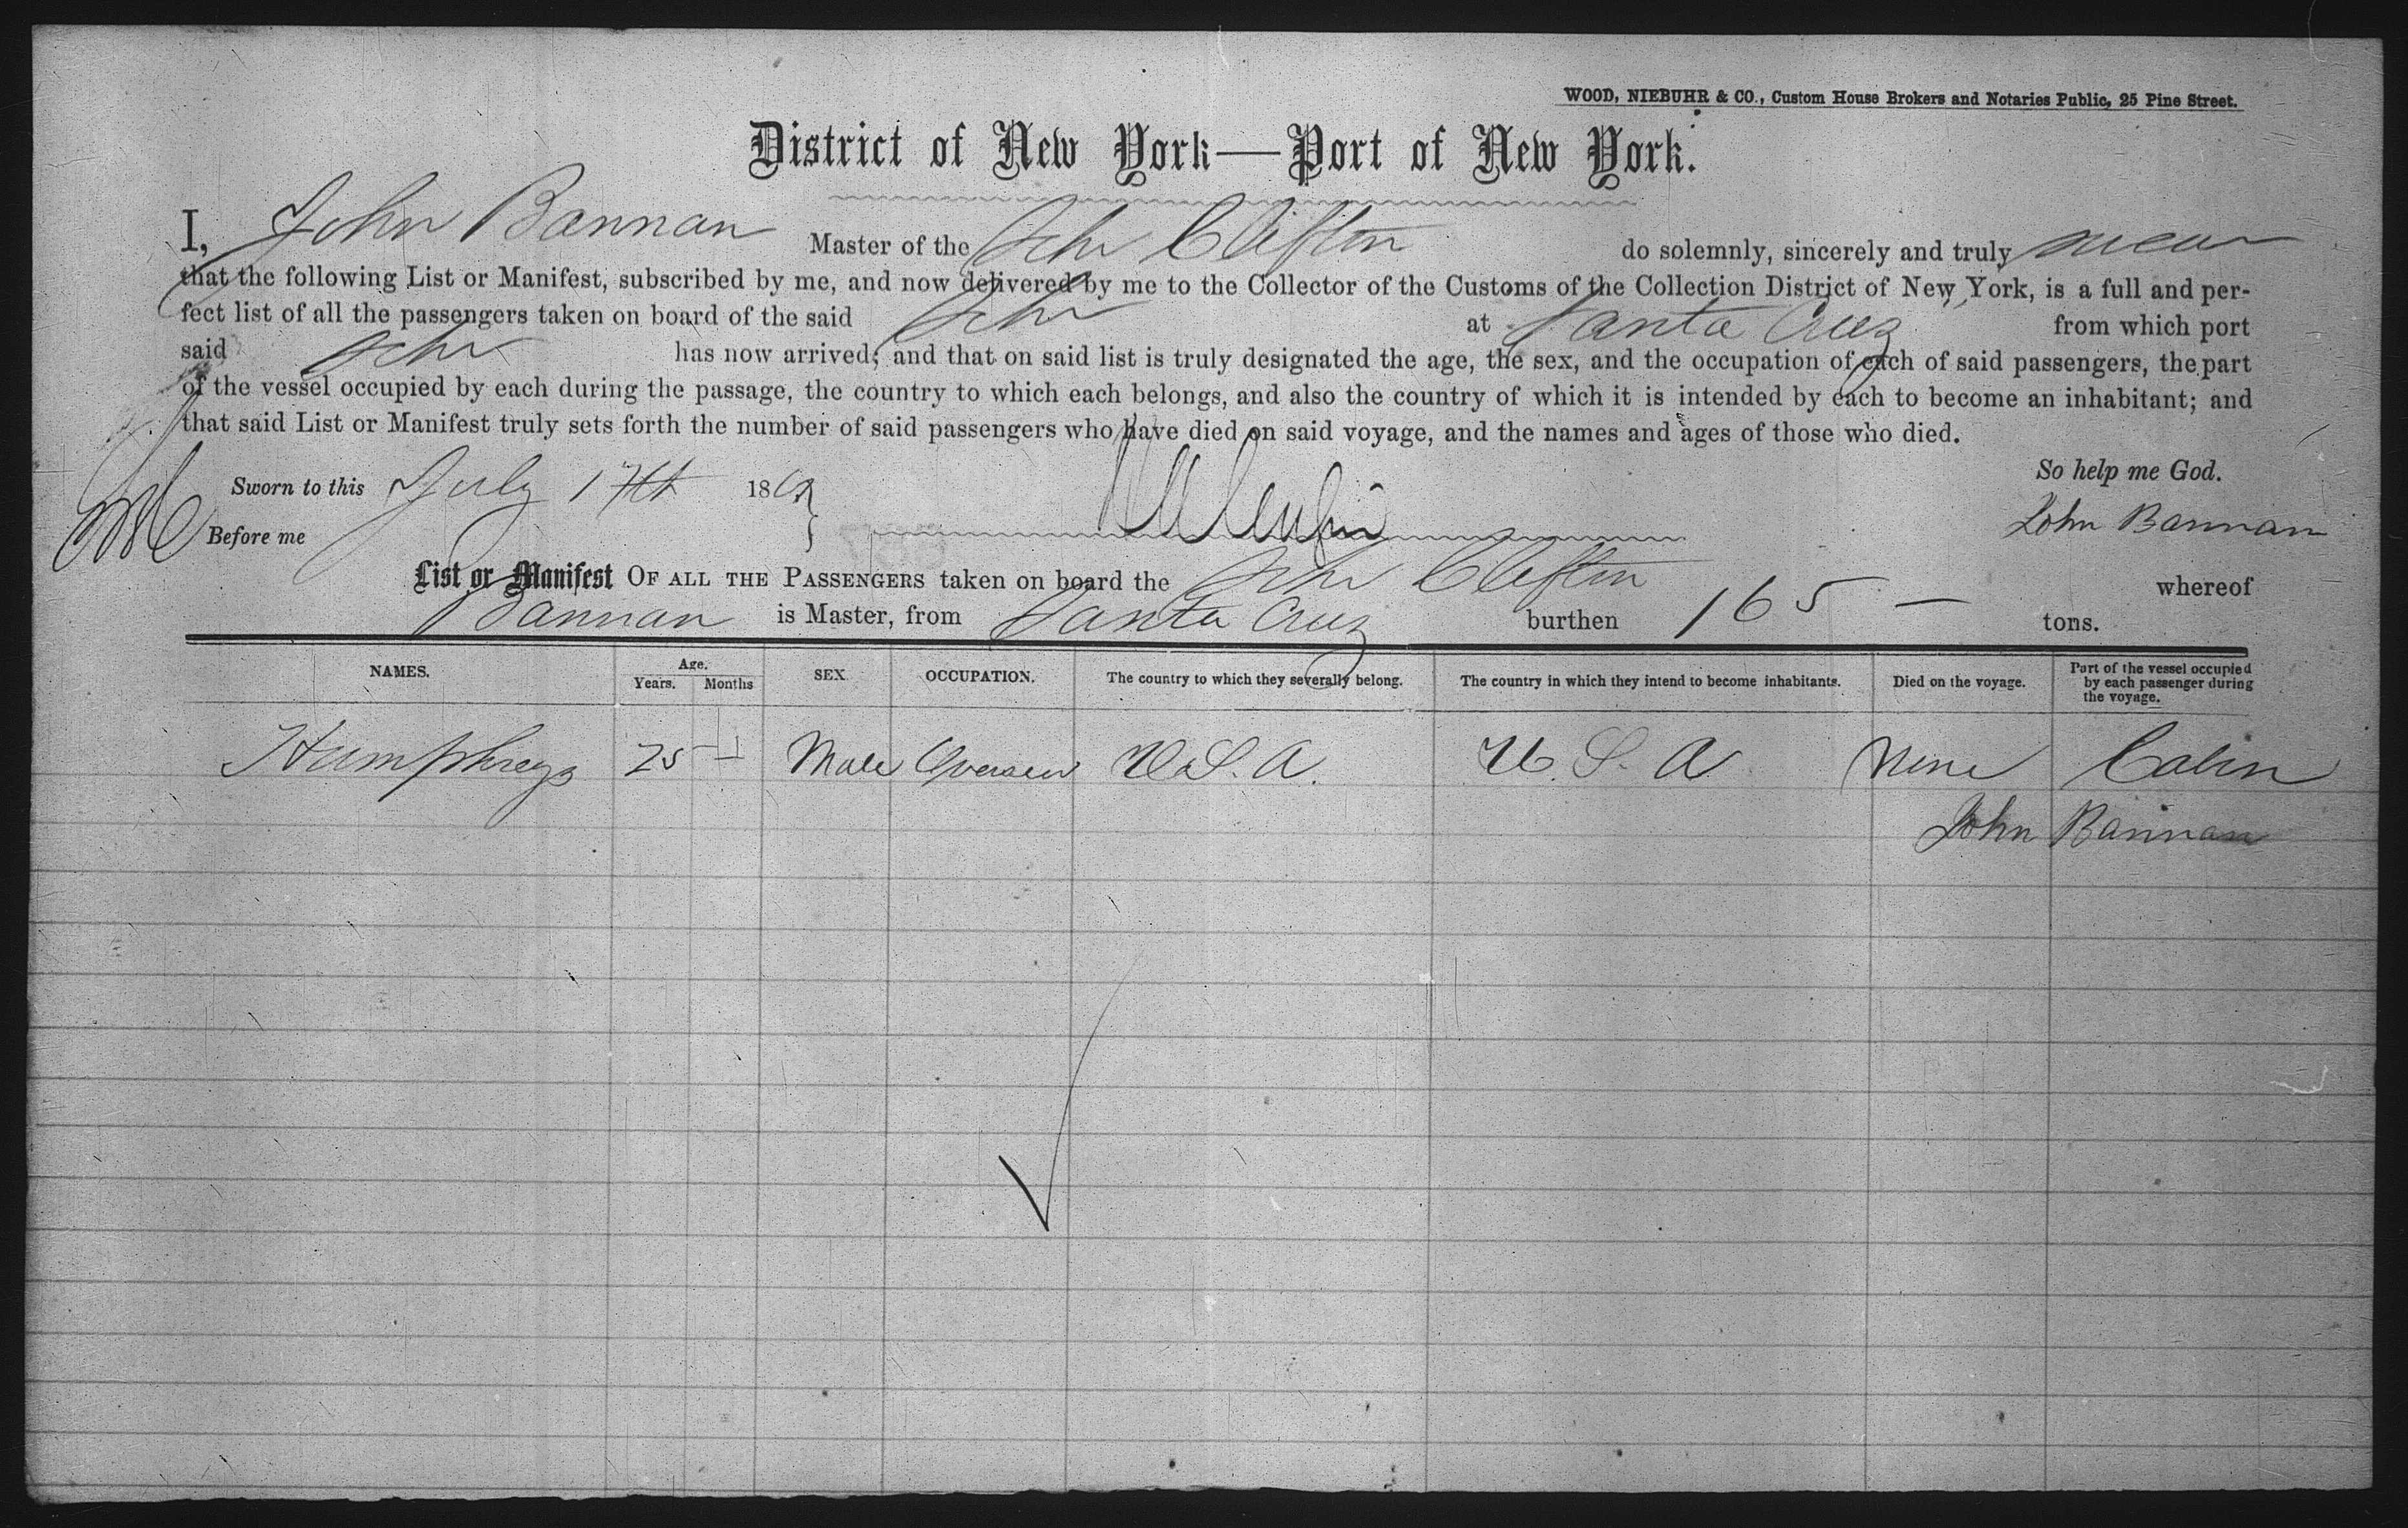 WOOD, NIEBUHR & CO., Custom House Brokers and Notaries Public, 25 Pine Street.
District of New York—Port of New York.
I, John Bannan Master of the Schr Clifton do solemnly, sincerely and truly swear
that the following List or Manifest, subscribed by me, and now delivered by me to the Collector of the Customs of the Collection District of New York, is a full and per-
fect list of all the passengers taken on board of the said Schr at Santa Cruz from which port
said Schr has now arrived; and that on said list is truly designated the age, the sex, and the occupation of each of said passengers, the part
of the vessel occupied by each during the passage, the country to which each belongs, and also the country of which it is intended by each to become an inhabitant; and
that said List or Manifest truly sets forth the number of said passengers who have died on said voyage, and the names and ages of those who died.
So help me God.
Sworn to this July 17th 186
Before me
John Bannan
List or Manifest OF ALL THE PASSENGERS taken on board the Schr Clifton whereof
Bannan is Master, from Santa Cruz burthen 165 — tons.
NAMES. Age. Years. Months SEX. OCCUPATION. The country to which they severally belong. The country in which they intend to become inhabitants. Died on the voyage. Part of the vessel occupied by each passenger during the voyage.
Humphreys 25 — Male Overseer U.S.A. U.S.A None Cabin
John Bannan